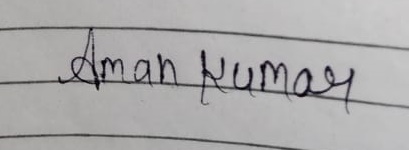 Aman Kumar